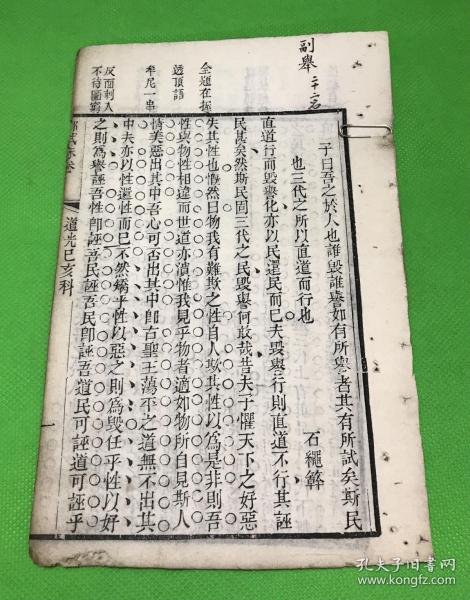 副舉二十二名
子曰吾之於人也誰毀誰譽如有所譽者其有所試矣斯民
也三代之所以直道而行也
石繩簳
直道行而毀譽化亦以民還民而已夫毀譽行則直道不行其誣
民甚矣然斯民固三代之民毀譽何敢哉昔夫子懼天下之好惡
失其性也慨然曰物我有難欺之性自人欺其性以爲是非則吾
性與物性相違而世道亦潰惟我見乎物者適如物所自見斯人
情美惡出其中吾心可否出其中卽古聖王蕩平之道無不出其
中夫亦以性還性而已不然矯乎性以惡之則爲毀任乎性以好
之則爲譽誣吾性卽誣吾民誣吾民卽誣吾道民可誣道可誣乎
全題在握
透頂語
牟尼一串
反面刺入
不待圖窮
道光己亥科
孔夫子旧书网
www.kongfz.com